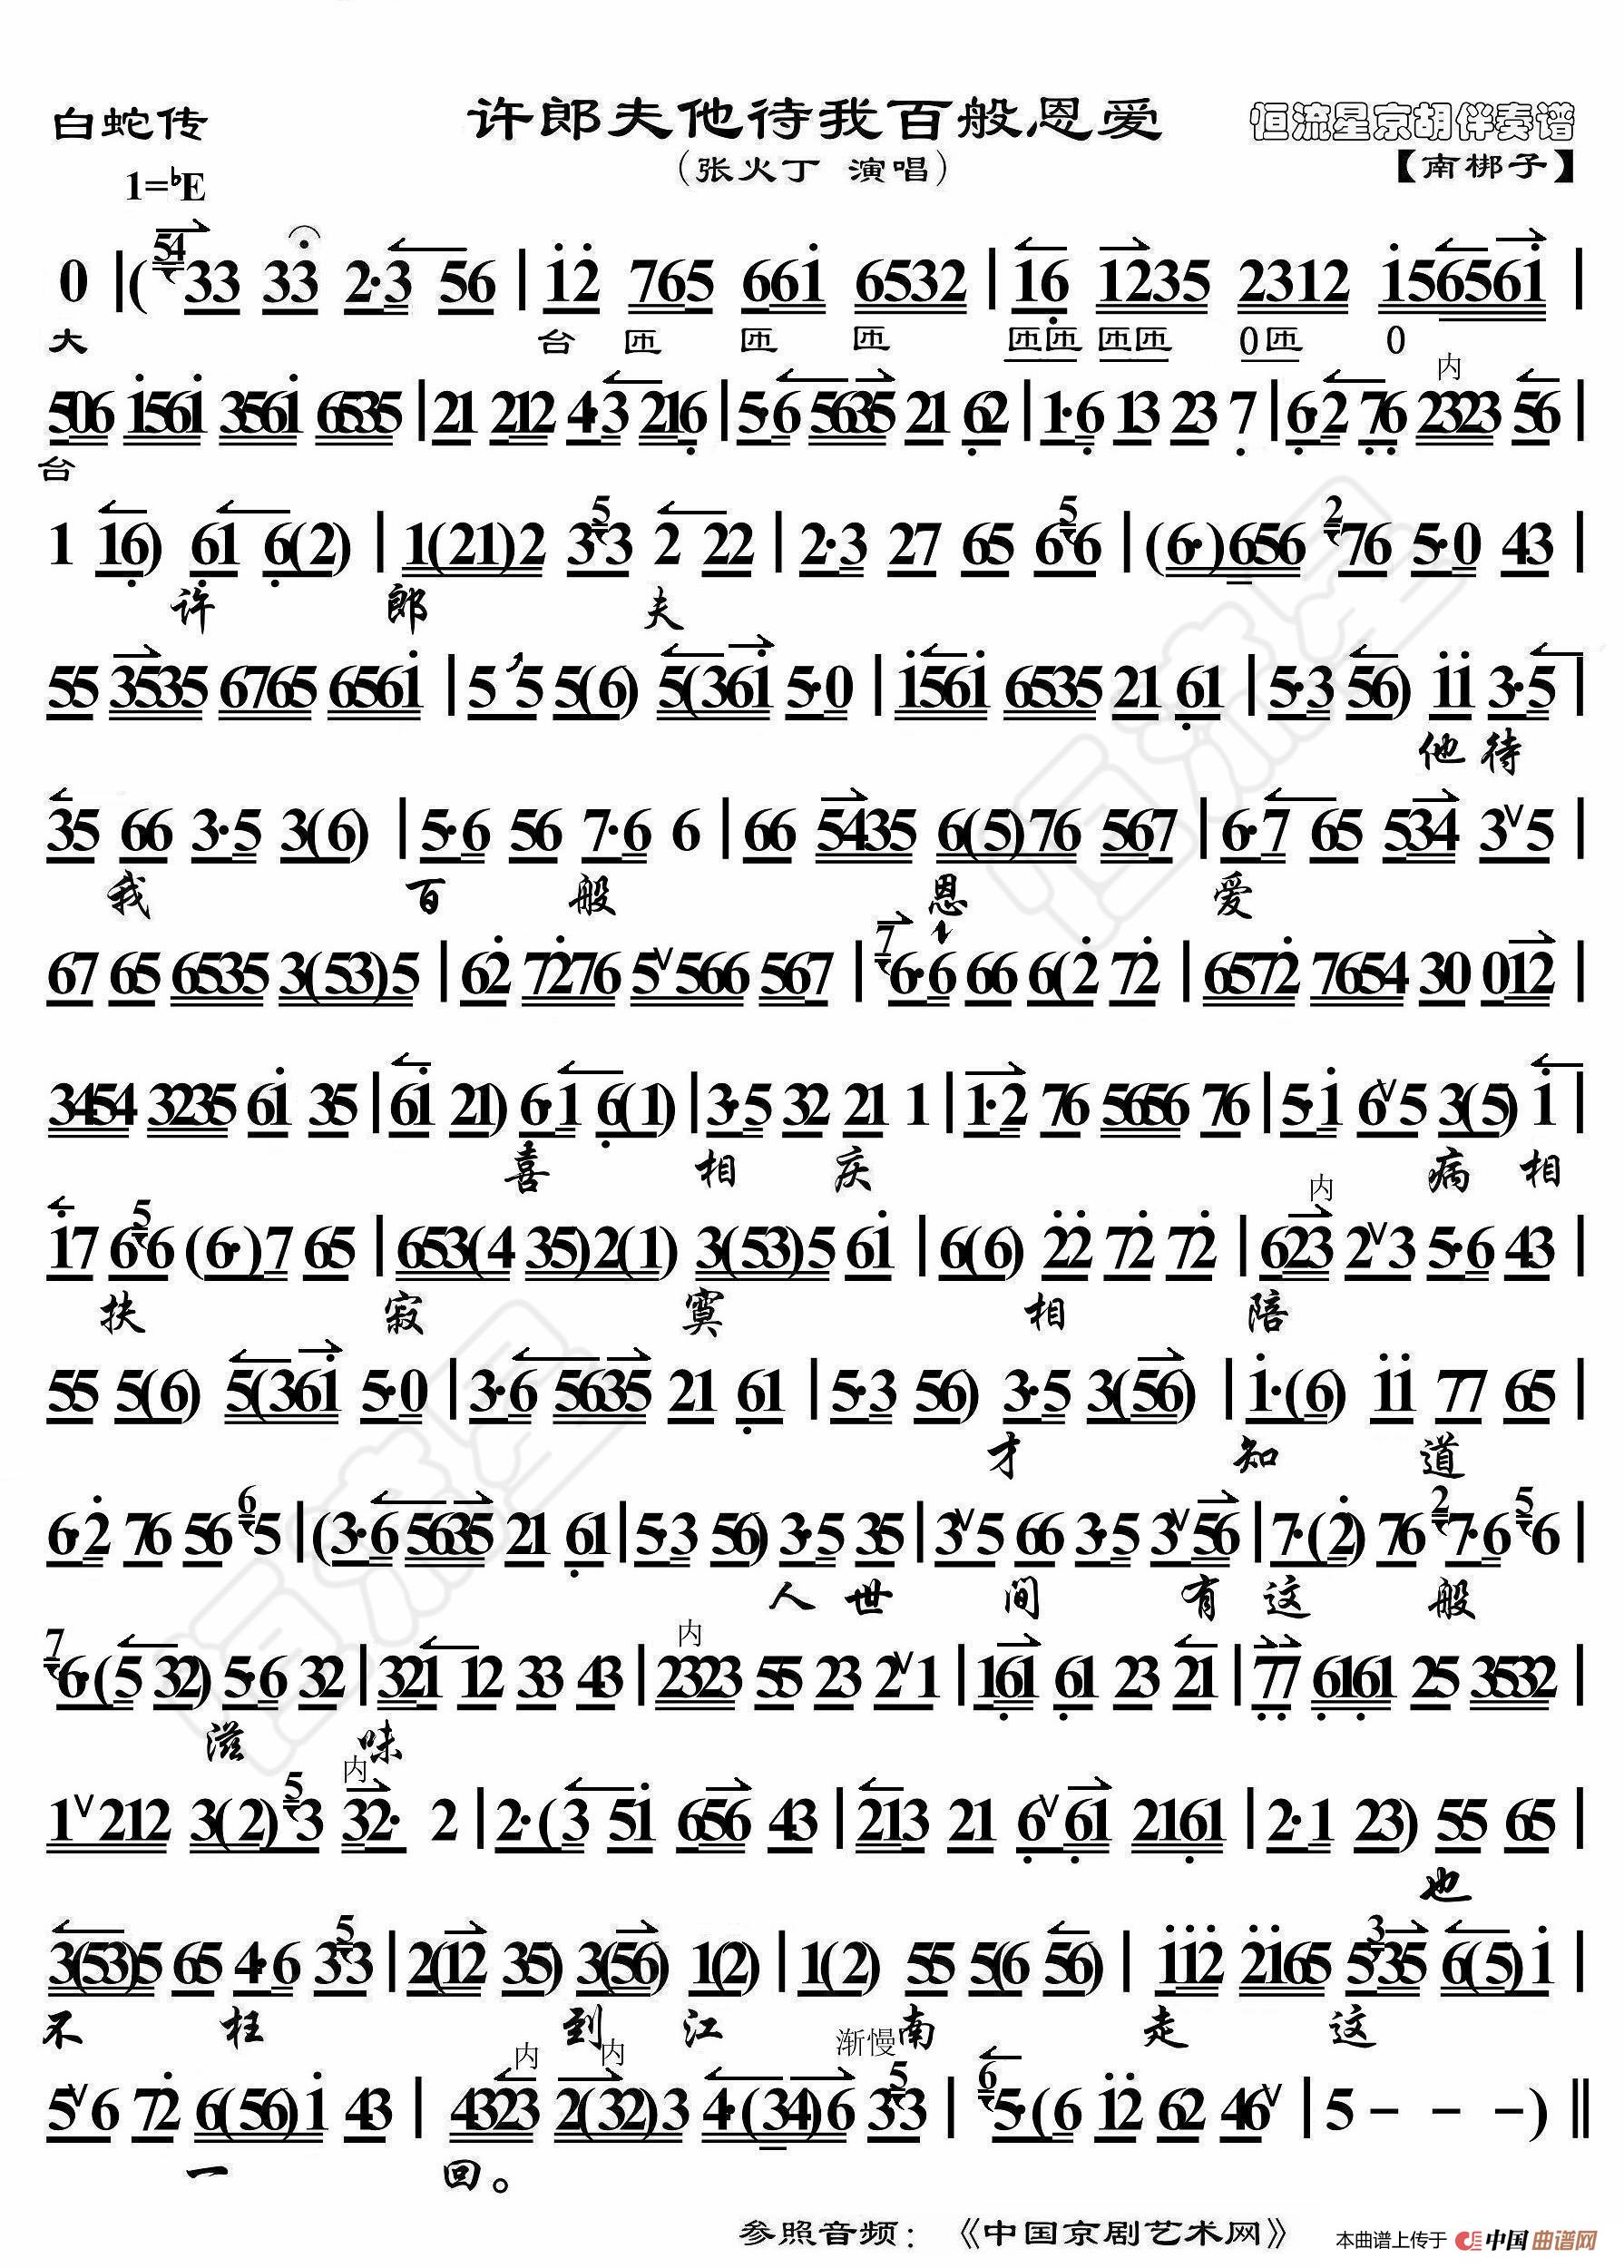 白蛇传 许郎夫他待我百般恩爱 恒流星京胡伴奏谱
(张火丁 演唱) 【南梆子】
1=♭E
0 |( 54 33 33 2·3 56 | 12 765 661 6532 | 16 1235 2312 156561 |
大 台 匝 匝 匝 匝匝 匝匝 0匝 0
内
506 1561 3561 6535 | 21 212 4·3 216 | 5·6 5635 21 62 | 1·6 13 23 7 | 6·2 76 2323 56 |
台
1 16) 61 6(2) | 1(21)2 3 5 3 2 22 | 2·3 27 65 6 5 6 | (6·)656 2 76 5·0 43 |
许 郎 夫
55 3535 6765 6561 | 5 5 5(6) 5(361 5·0 | 1561 6535 21 61 | 5·3 56) 11 3·5 |
他 待
35 66 3·5 3(6) | 5·6 56 7·6 6 | 66 5435 6(5)76 567 | 6·7 65 534 3∨5 |
我 百 般 恩 爱
67 65 6535 3(53)5 | 62 7276 5∨566 567 | 7 6·6 66 6(2 72 | 6572 7654 30 012 |
3454 3235 61 35 | 61 21) 6·1 6(1) | 3·5 32 21 1 | 1·2 76 5656 76 | 5·1 6∨5 3(5) 1 |
喜 相 庆 病 相
内
17 6 5 6 (6·)7 65 | 653(4 35)2(1) 3(53)5 61 | 6(6) 22 72 72 | 623 2∨3 5·6 43 |
扶 寂 寞 相 陪
55 5(6) 5(361 5·0 | 3·6 5635 21 61 | 5·3 56) 3·5 3(56) | 1·(6) 11 77 65 |
才 知 道
6·2 76 56 6 5 | (3·6 5635 21 61 | 5·3 56) 3·5 35 | 3∨5 66 3·5 3∨56 | 7·(2) 76 2 7·6 5 6 |
人 世 间 有 这 般
内
7 6·(5 32) 5·6 32 | 321 12 33 43 | 2323 55 23 2∨1 | 161 61 23 21 | 77 6161 25 3532 |
滋 味
内
1∨212 3(2) 5 3 32· 2 | 2·(3 51 656 43 | 213 21 6∨61 2161 | 2·1 23) 55 65 |
也
3(53)5 65 4·6 3 5 3 | 2(12 35) 3(56) 1(2) | 1(2) 55 5(6 56) | 112 2165 5 3 35 6(5)1 |
不 枉 到 江 南 走 这
内 内 渐慢
5∨6 72 6(56)1 43 | 4323 2(32)3 4·(34)6 3 5 3 | 6 5·(6 12 62 46∨ | 5 - - -) ‖
一 回。
参照音频：《中国京剧艺术网》 本曲谱上传于 中国曲谱网